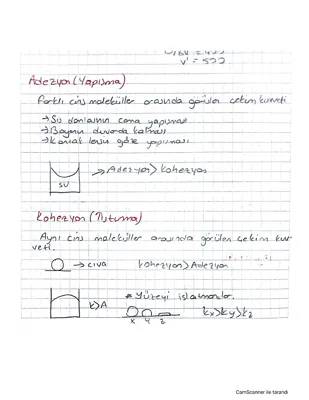 v' = 500
Adezyon (Yapışma)
Farklı cins moleküller arasında görülen çekim kuvveti
→ Su damlasının cama yapışması
→ Boyanın duvarda kalması
→ Kontak lensin göze yapışması
→ Adezyon > Kohezyon
su
Kohezyon (Tutunma)
Aynı cins moleküller arasında görülen çekim kuv
veti.
→ civa Kohezyon > Adezyon
K>A * Yüzeyi ıslatmazlar.
x y z kx>ky>kz
CamScanner ile tarandı